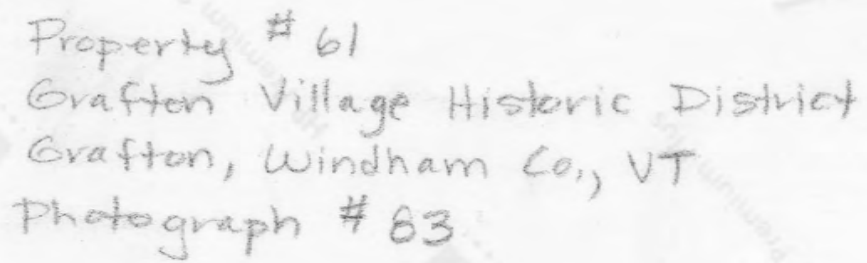 Property # 61
Grafton Village Historic District
Grafton, Windham Co., VT
Photograph # 83